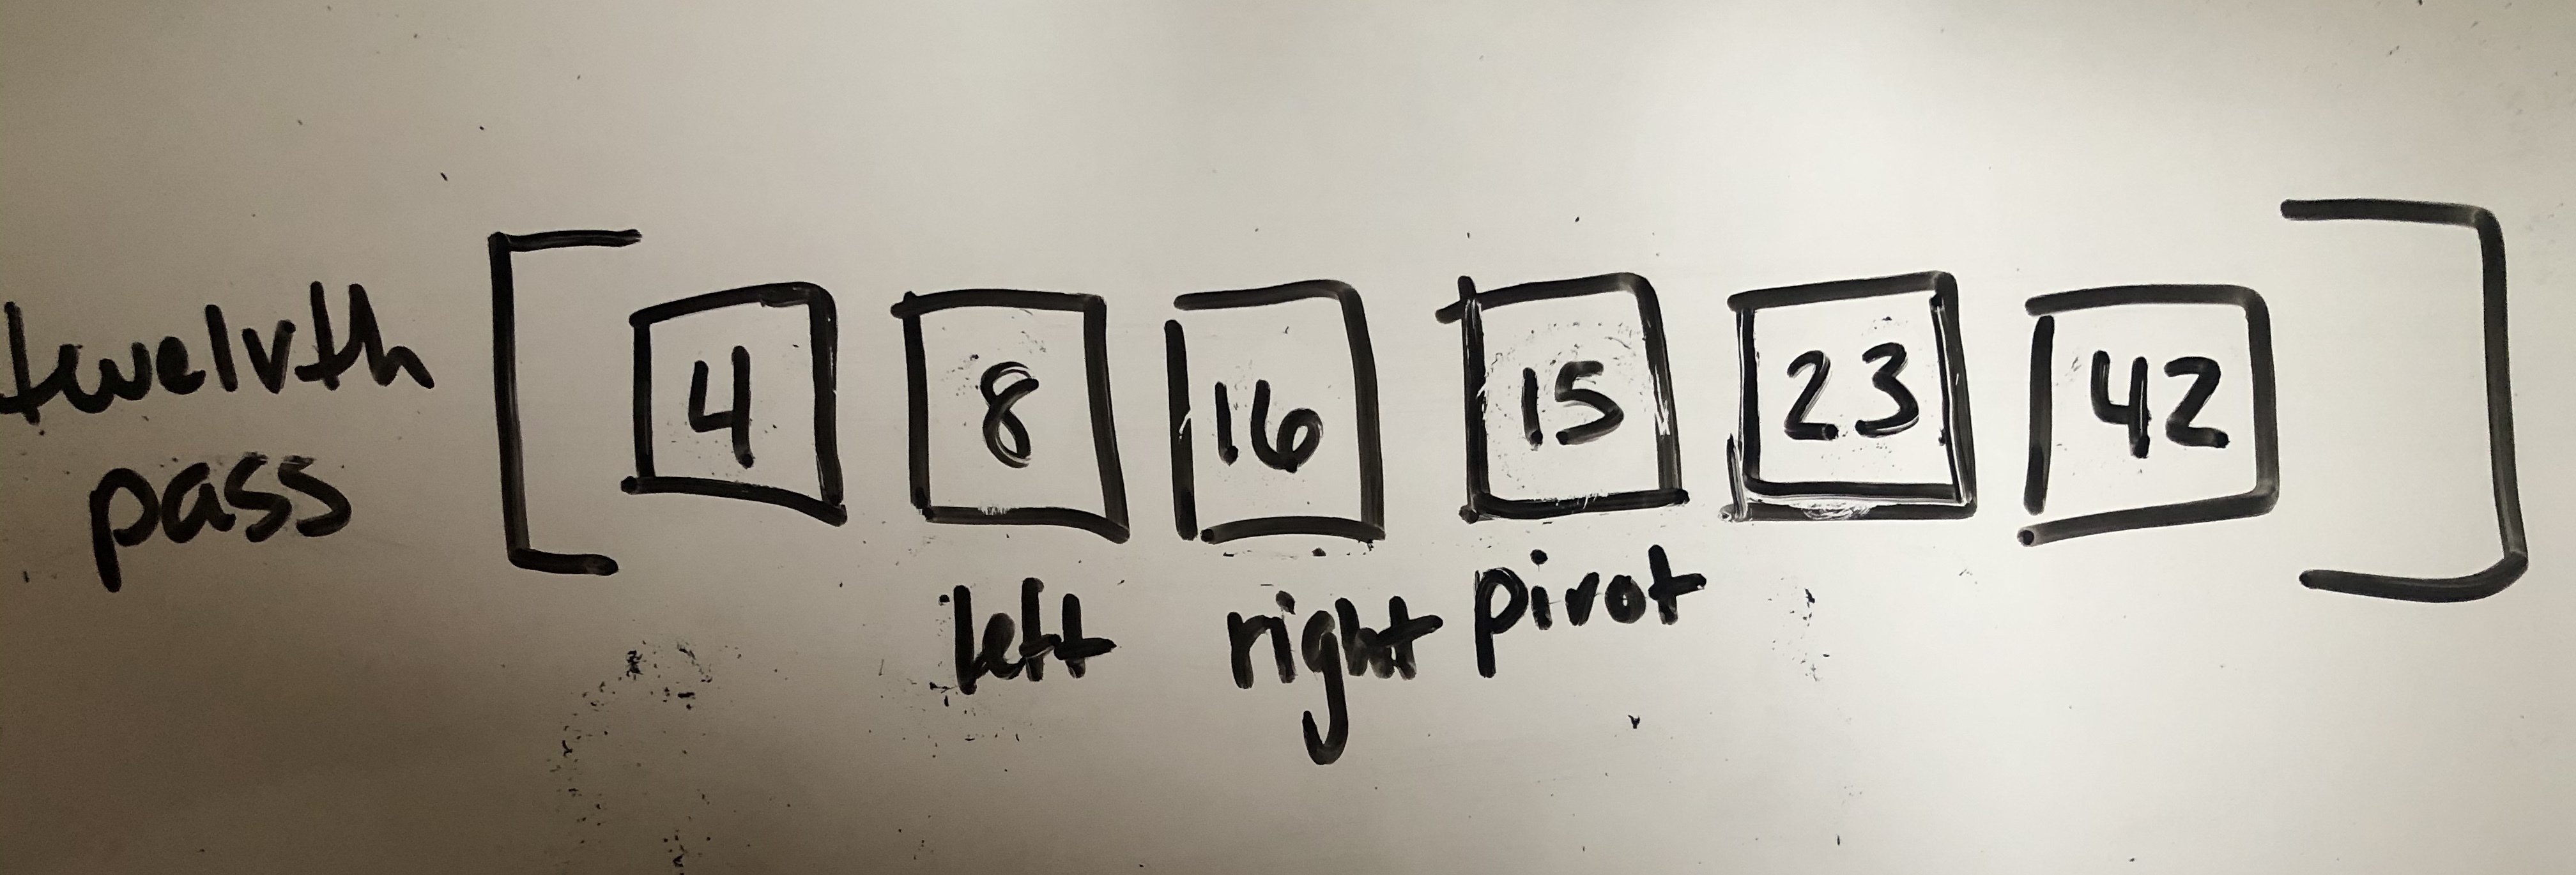 twelvth
pass
[ 4 8 16 15 23 42 ]
left right pivot